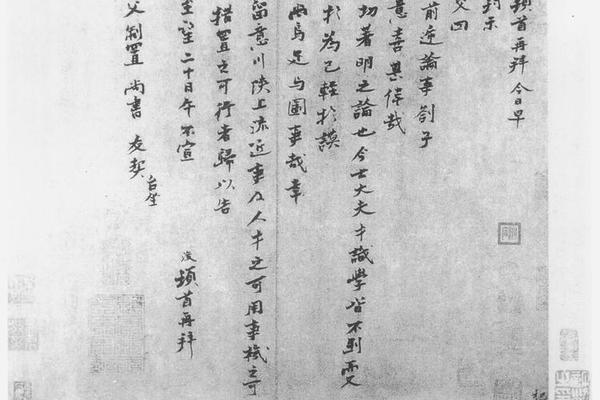 頓首再拜 今日早
封示
父回
前途論事劄子
意喜甚偉哉
切著明之論也今士大夫才識學皆不到而又
於為己輕於謀
焉足与國事哉幸
留意川陝上流近事及人才之可用事機之可
措置之可行者歸以告
至望二十日午 不宣
浚 頓首再拜
父制置 尚書 友契 台坐